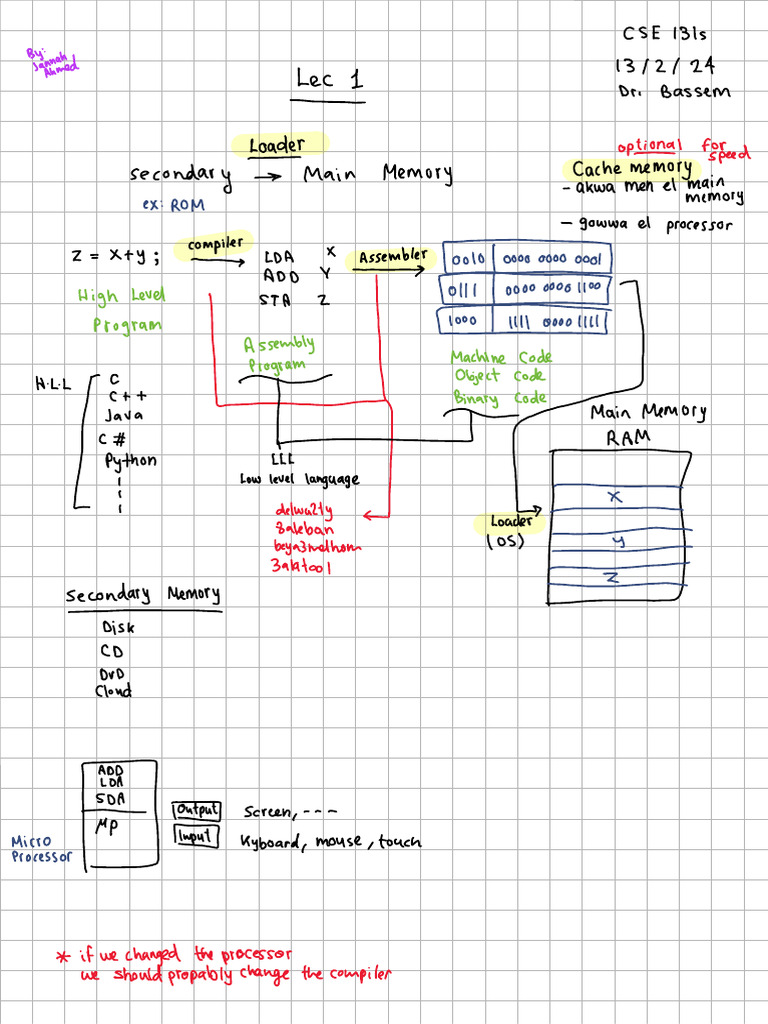 By:
Jannah
Ahmed
CSE 131s
13/2/24
Dr. Bassem
Lec 1
Loader
secondary → Main Memory
ex: ROM
optional for
speed
Cache memory
- akwa men el main
memory
- gowwa el processor
Z = X+y ;
compiler
LDA X
ADD Y
STA Z
Assembler
0010 0000 0000 0001
0111 0000 0000 1100
1000 1111 0000 1111
High Level
Program
Assembly
Program
Machine Code
Object Code
Binary Code
H.L.L
C
C++
Java
C#
Python
LLL
Low level language
delwa2ty
8aleban
beya3melhom
3alatool
Main Memory
RAM
X
y
Z
Loader
(OS)
Secondary Memory
Disk
CD
DVD
Cloud
ADD
LDA
SDA
MP
Micro
Processor
Output
Screen, ---
Input
Kyboard, mouse, touch
* if we changed the processor
we should propably change the compiler